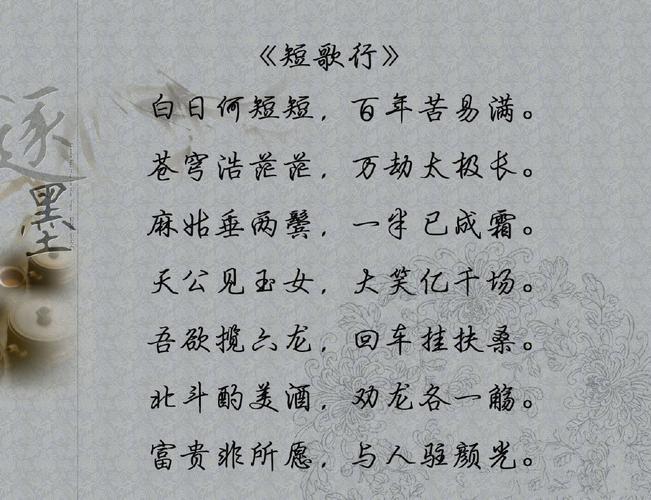 《短歌行》
白日何短短，百年苦易满。
苍穹浩茫茫，万劫太极长。
麻姑垂两鬓，一半已成霜。
天公见玉女，大笑亿千场。
吾欲揽六龙，回车挂扶桑。
北斗酌美酒，劝龙各一觞。
富贵非所愿，与人驻颜光。
逐墨